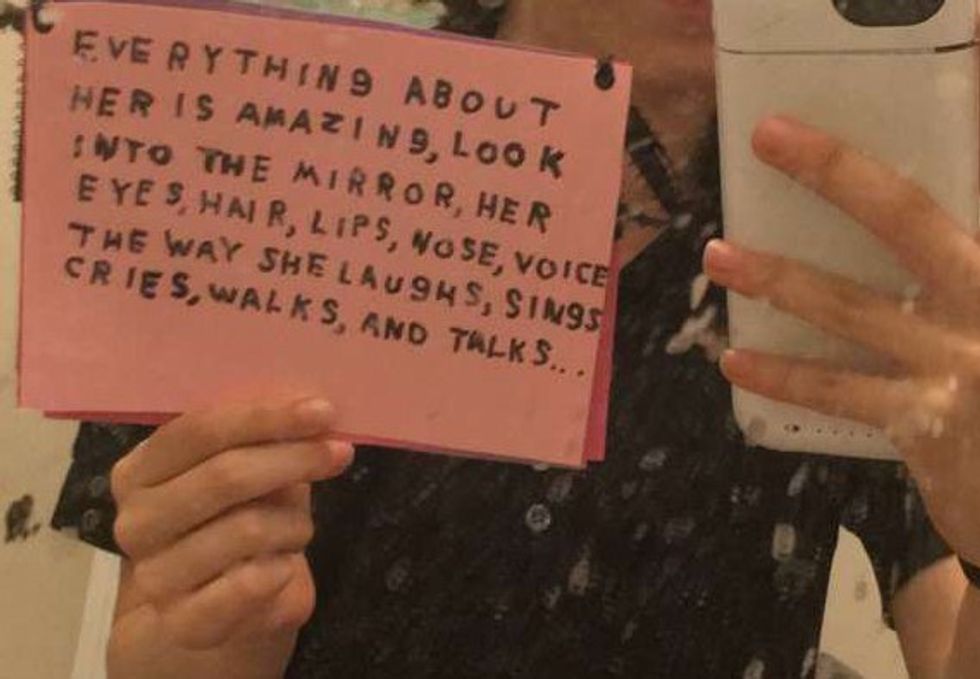 EVERYTHING ABOUT
HER IS AMAZING, LOOK
INTO THE MIRROR, HER
EYES, HAIR, LIPS, NOSE, VOICE
THE WAY SHE LAUGHS, SINGS
CRIES, WALKS, AND TALKS...